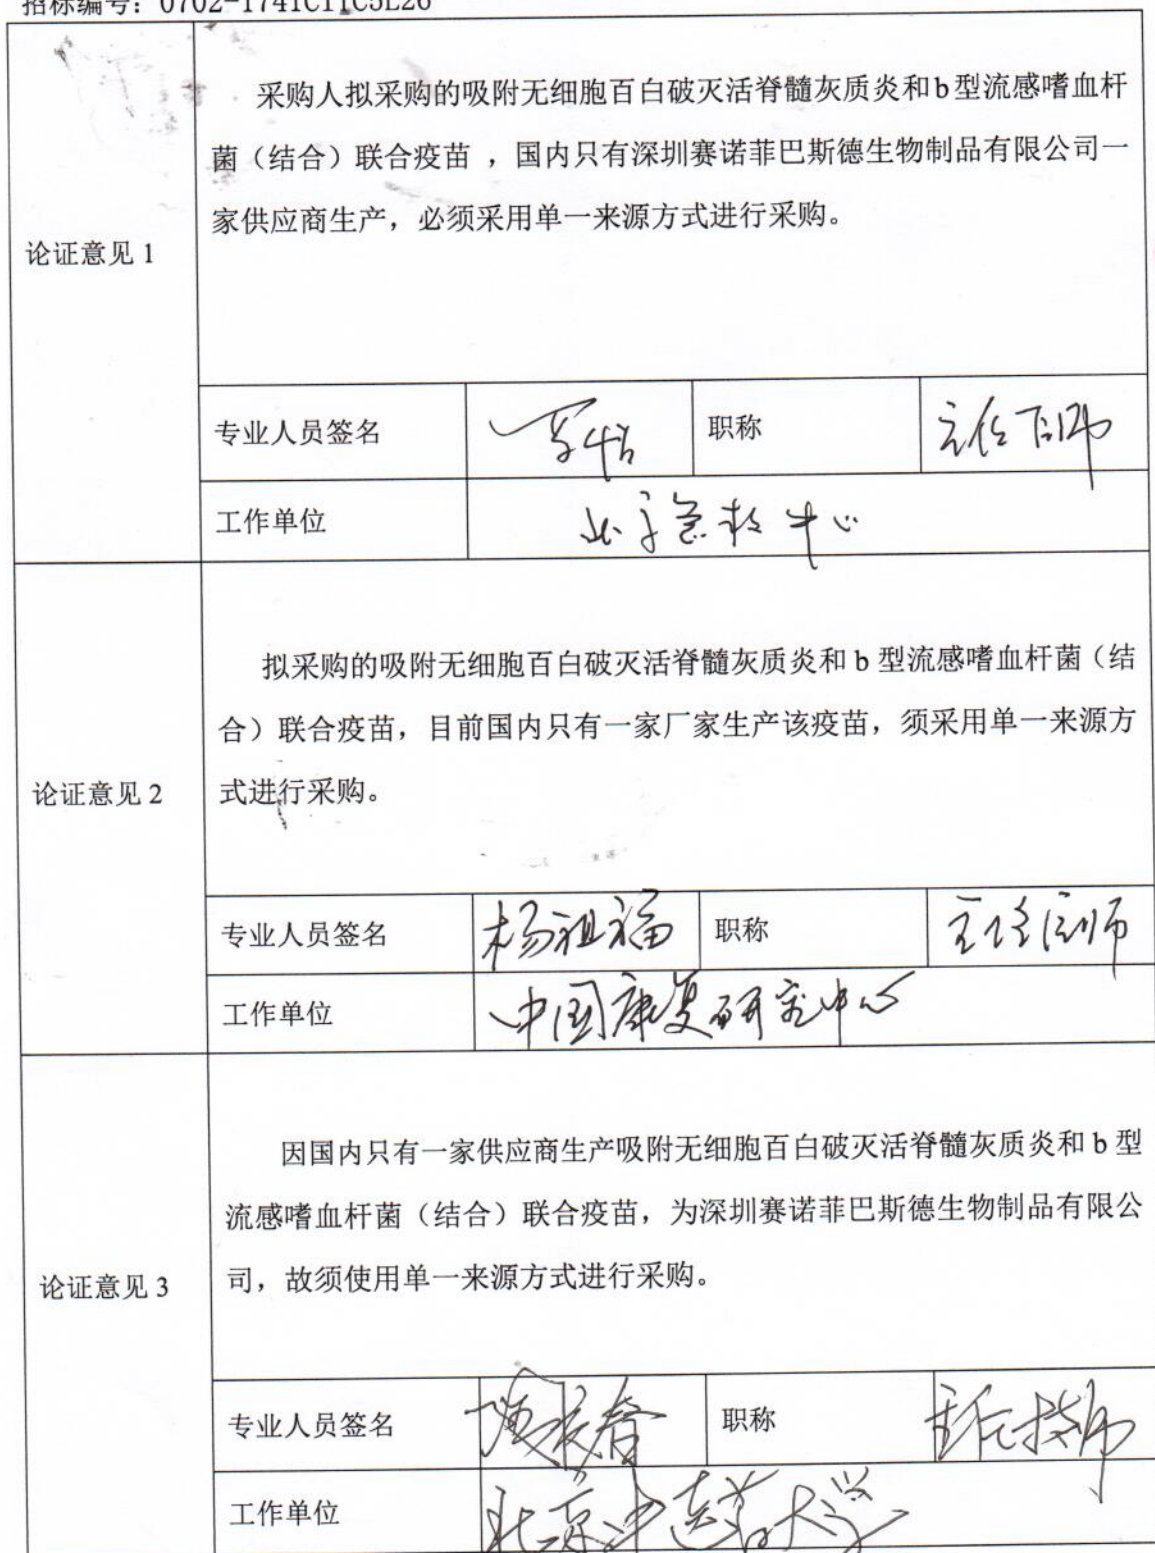 招标编号：0702-1741C11C5L26
采购人拟采购的吸附无细胞百白破灭活脊髓灰质炎和b型流感嗜血杆
菌（结合）联合疫苗 ，国内只有深圳赛诺菲巴斯德生物制品有限公司一
家供应商生产，必须采用单一来源方式进行采购。
论证意见 1
专业人员签名 职称 主任医师
工作单位 北京急救中心
拟采购的吸附无细胞百白破灭活脊髓灰质炎和 b 型流感嗜血杆菌（结
合）联合疫苗，目前国内只有一家厂家生产该疫苗，须采用单一来源方
式进行采购。
论证意见 2
专业人员签名 杨祖福 职称 主任医师
工作单位 中国康复研究中心
因国内只有一家供应商生产吸附无细胞百白破灭活脊髓灰质炎和 b 型
流感嗜血杆菌（结合）联合疫苗，为深圳赛诺菲巴斯德生物制品有限公
司，故须使用单一来源方式进行采购。
论证意见 3
专业人员签名 职称 主任技师
工作单位 北京中医药大学